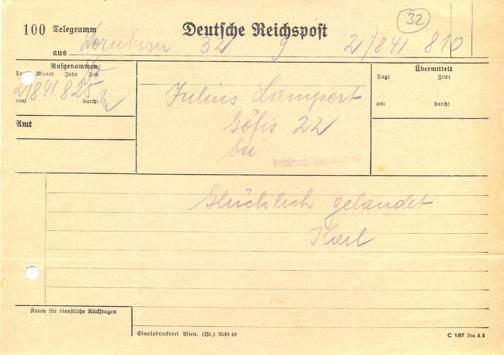 32
100 Telegramm Deutsche Reichspost
aus Dornbirn 32 9 21/8 41 8 10
Aufgenommen
Tag Monat Jahr Zeit
21 8 41 8 25
amt durch:
Amt
Julius Lampert
Göfis 22
bei
Übermittelt
Tag: Zeit:
an: durch:
Glücklich gelandet
Karl
Raum für dienstliche Rückfragen
Staatsdruckerei Wien. (St.) 3548 40
C 187 Din A 5